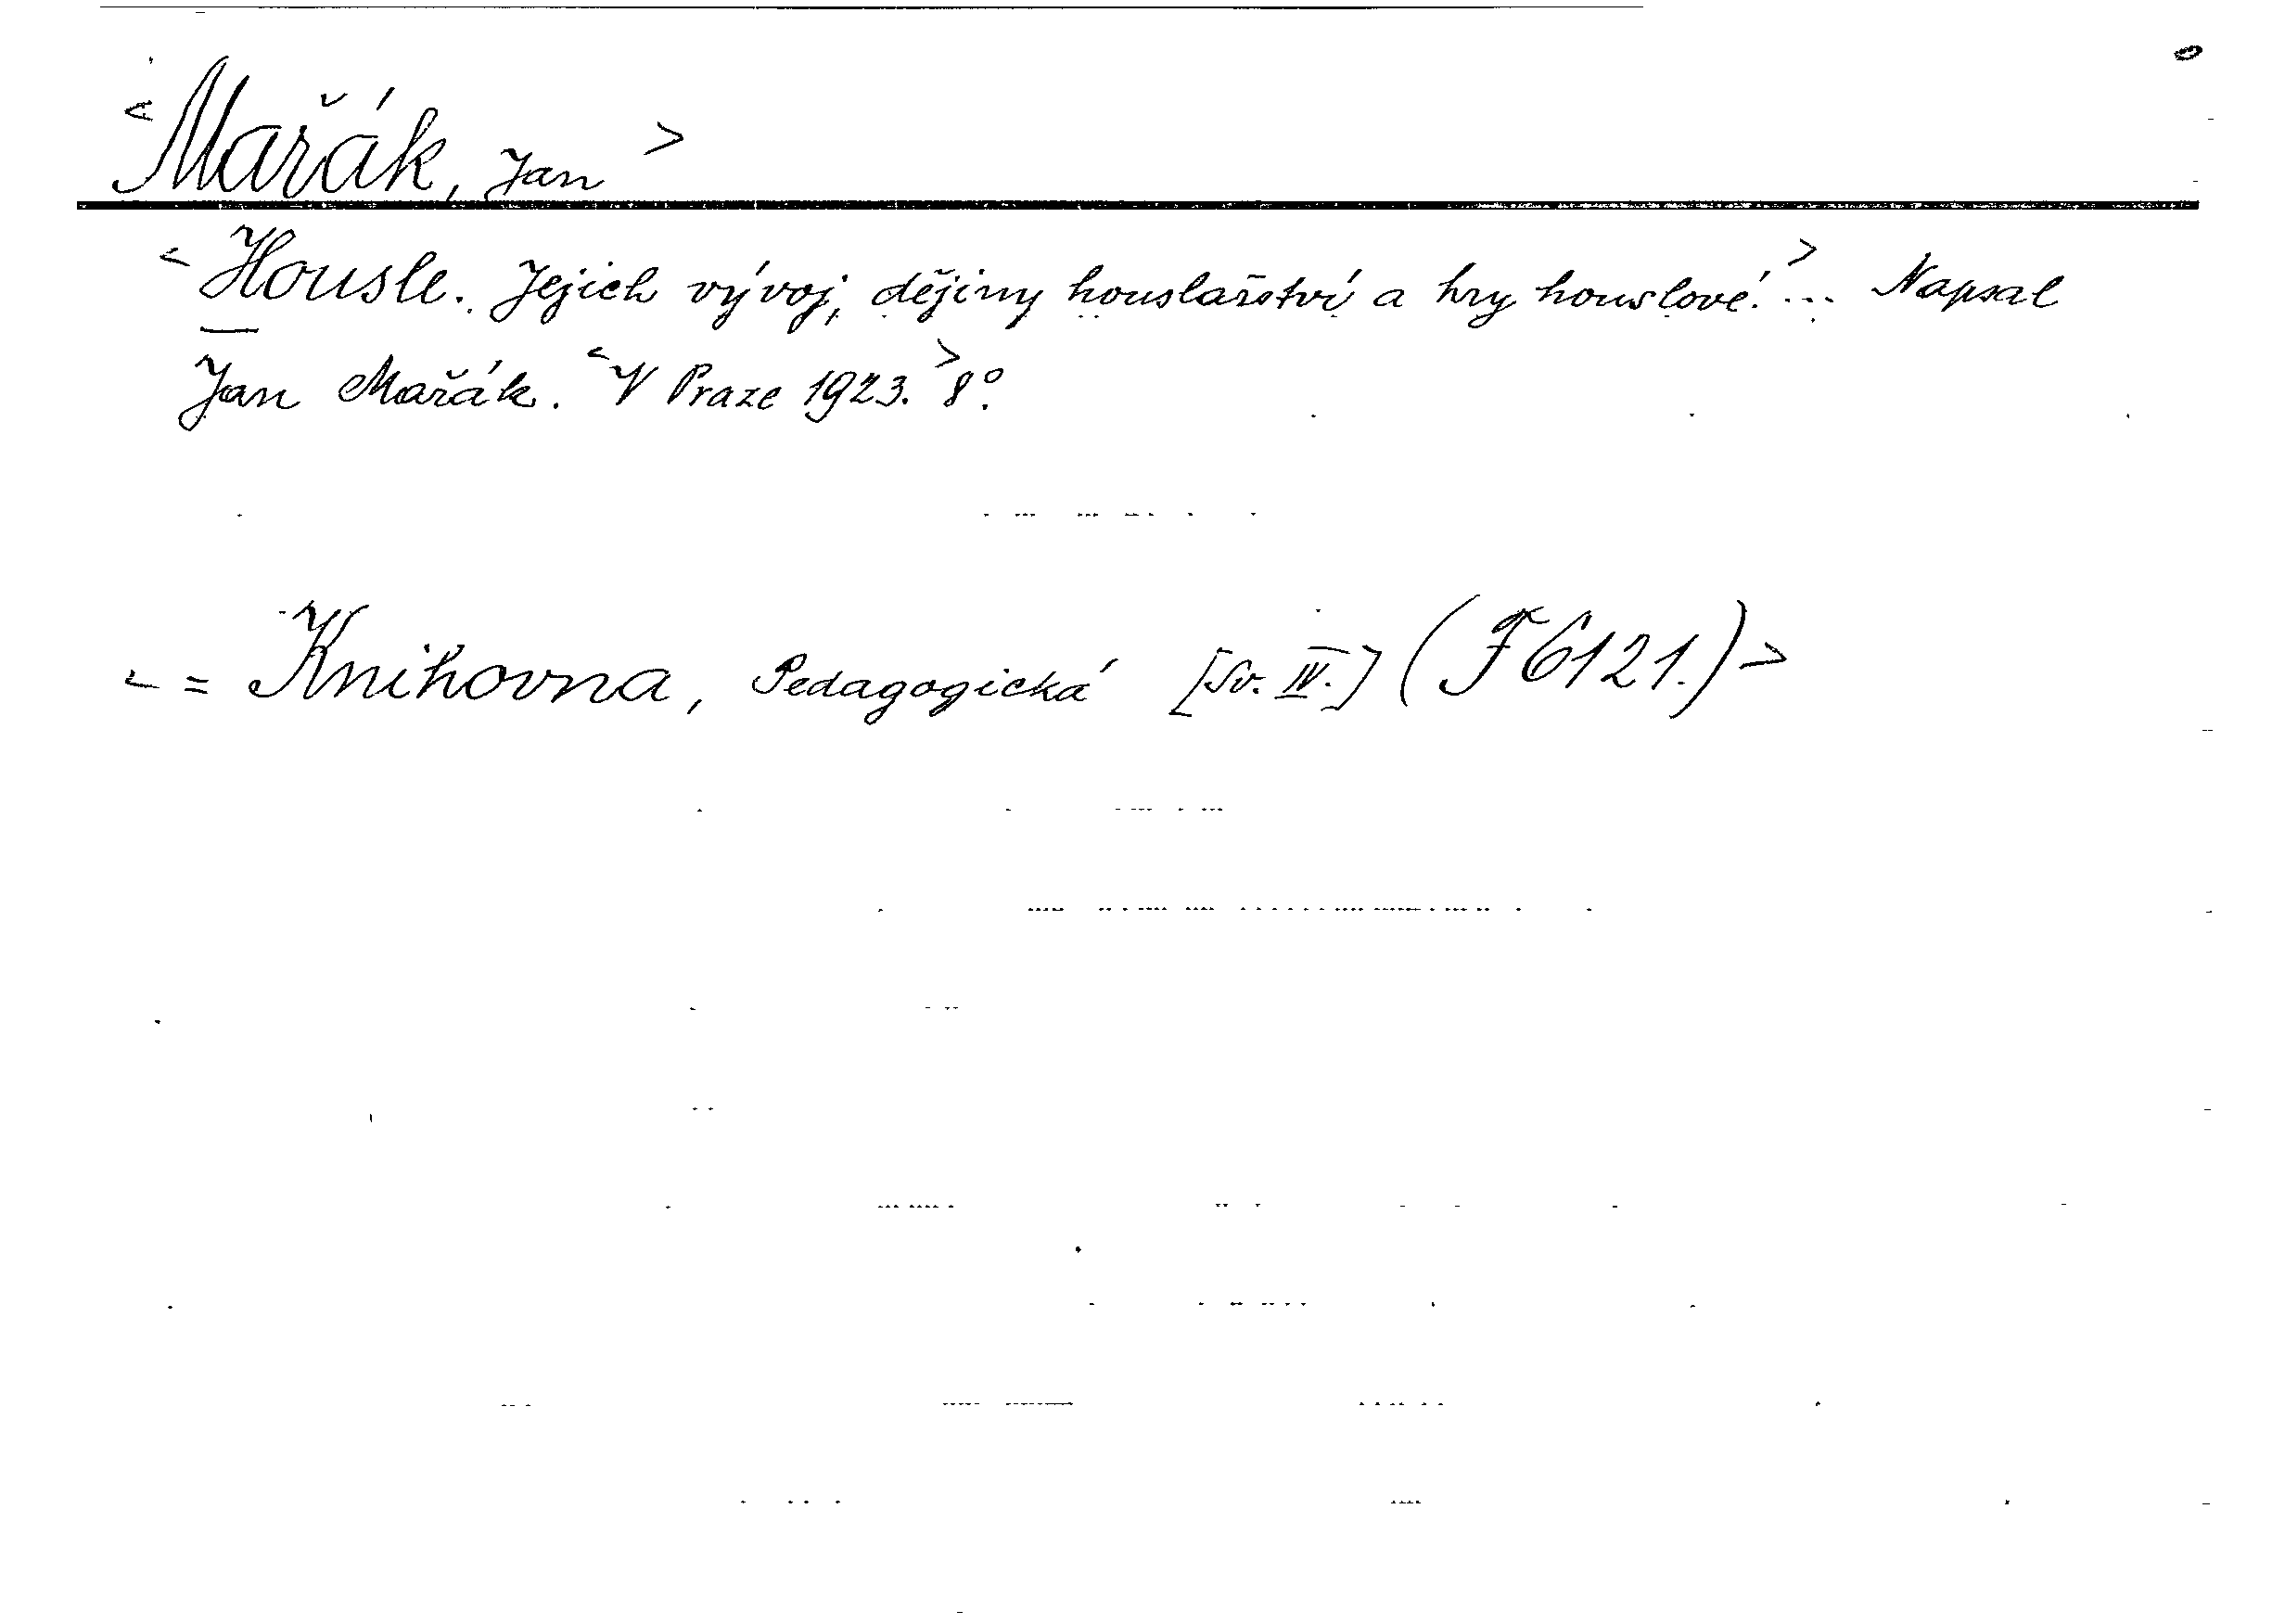 <Mařák, Jan>
<Housle. Jejich vývoj, dějiny houslařství a hry houslové.>... Napsal
Jan Mařák. <V Praze 1923.> 8°.
<= Knihovna, Pedagogická [Sv. IV.] (F 6121.)>